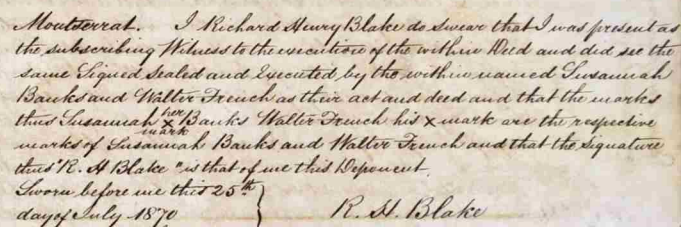 Montserrat. I Richard Henry Blake do swear that I was present as
the subscribing Witness to the execution of the within Deed and did see the
same Signed Sealed and Executed by the within named Susannah
Banks and Walter French as their act and deed and that the marks
thus Susannah her x mark Banks Walter French his x mark are the respective
marks of Susannah Banks and Walter French and that the Signature
thus "R. H Blake" is that of me this Deponent.
Sworn before me this 25th
day of July 1870
R. H. Blake